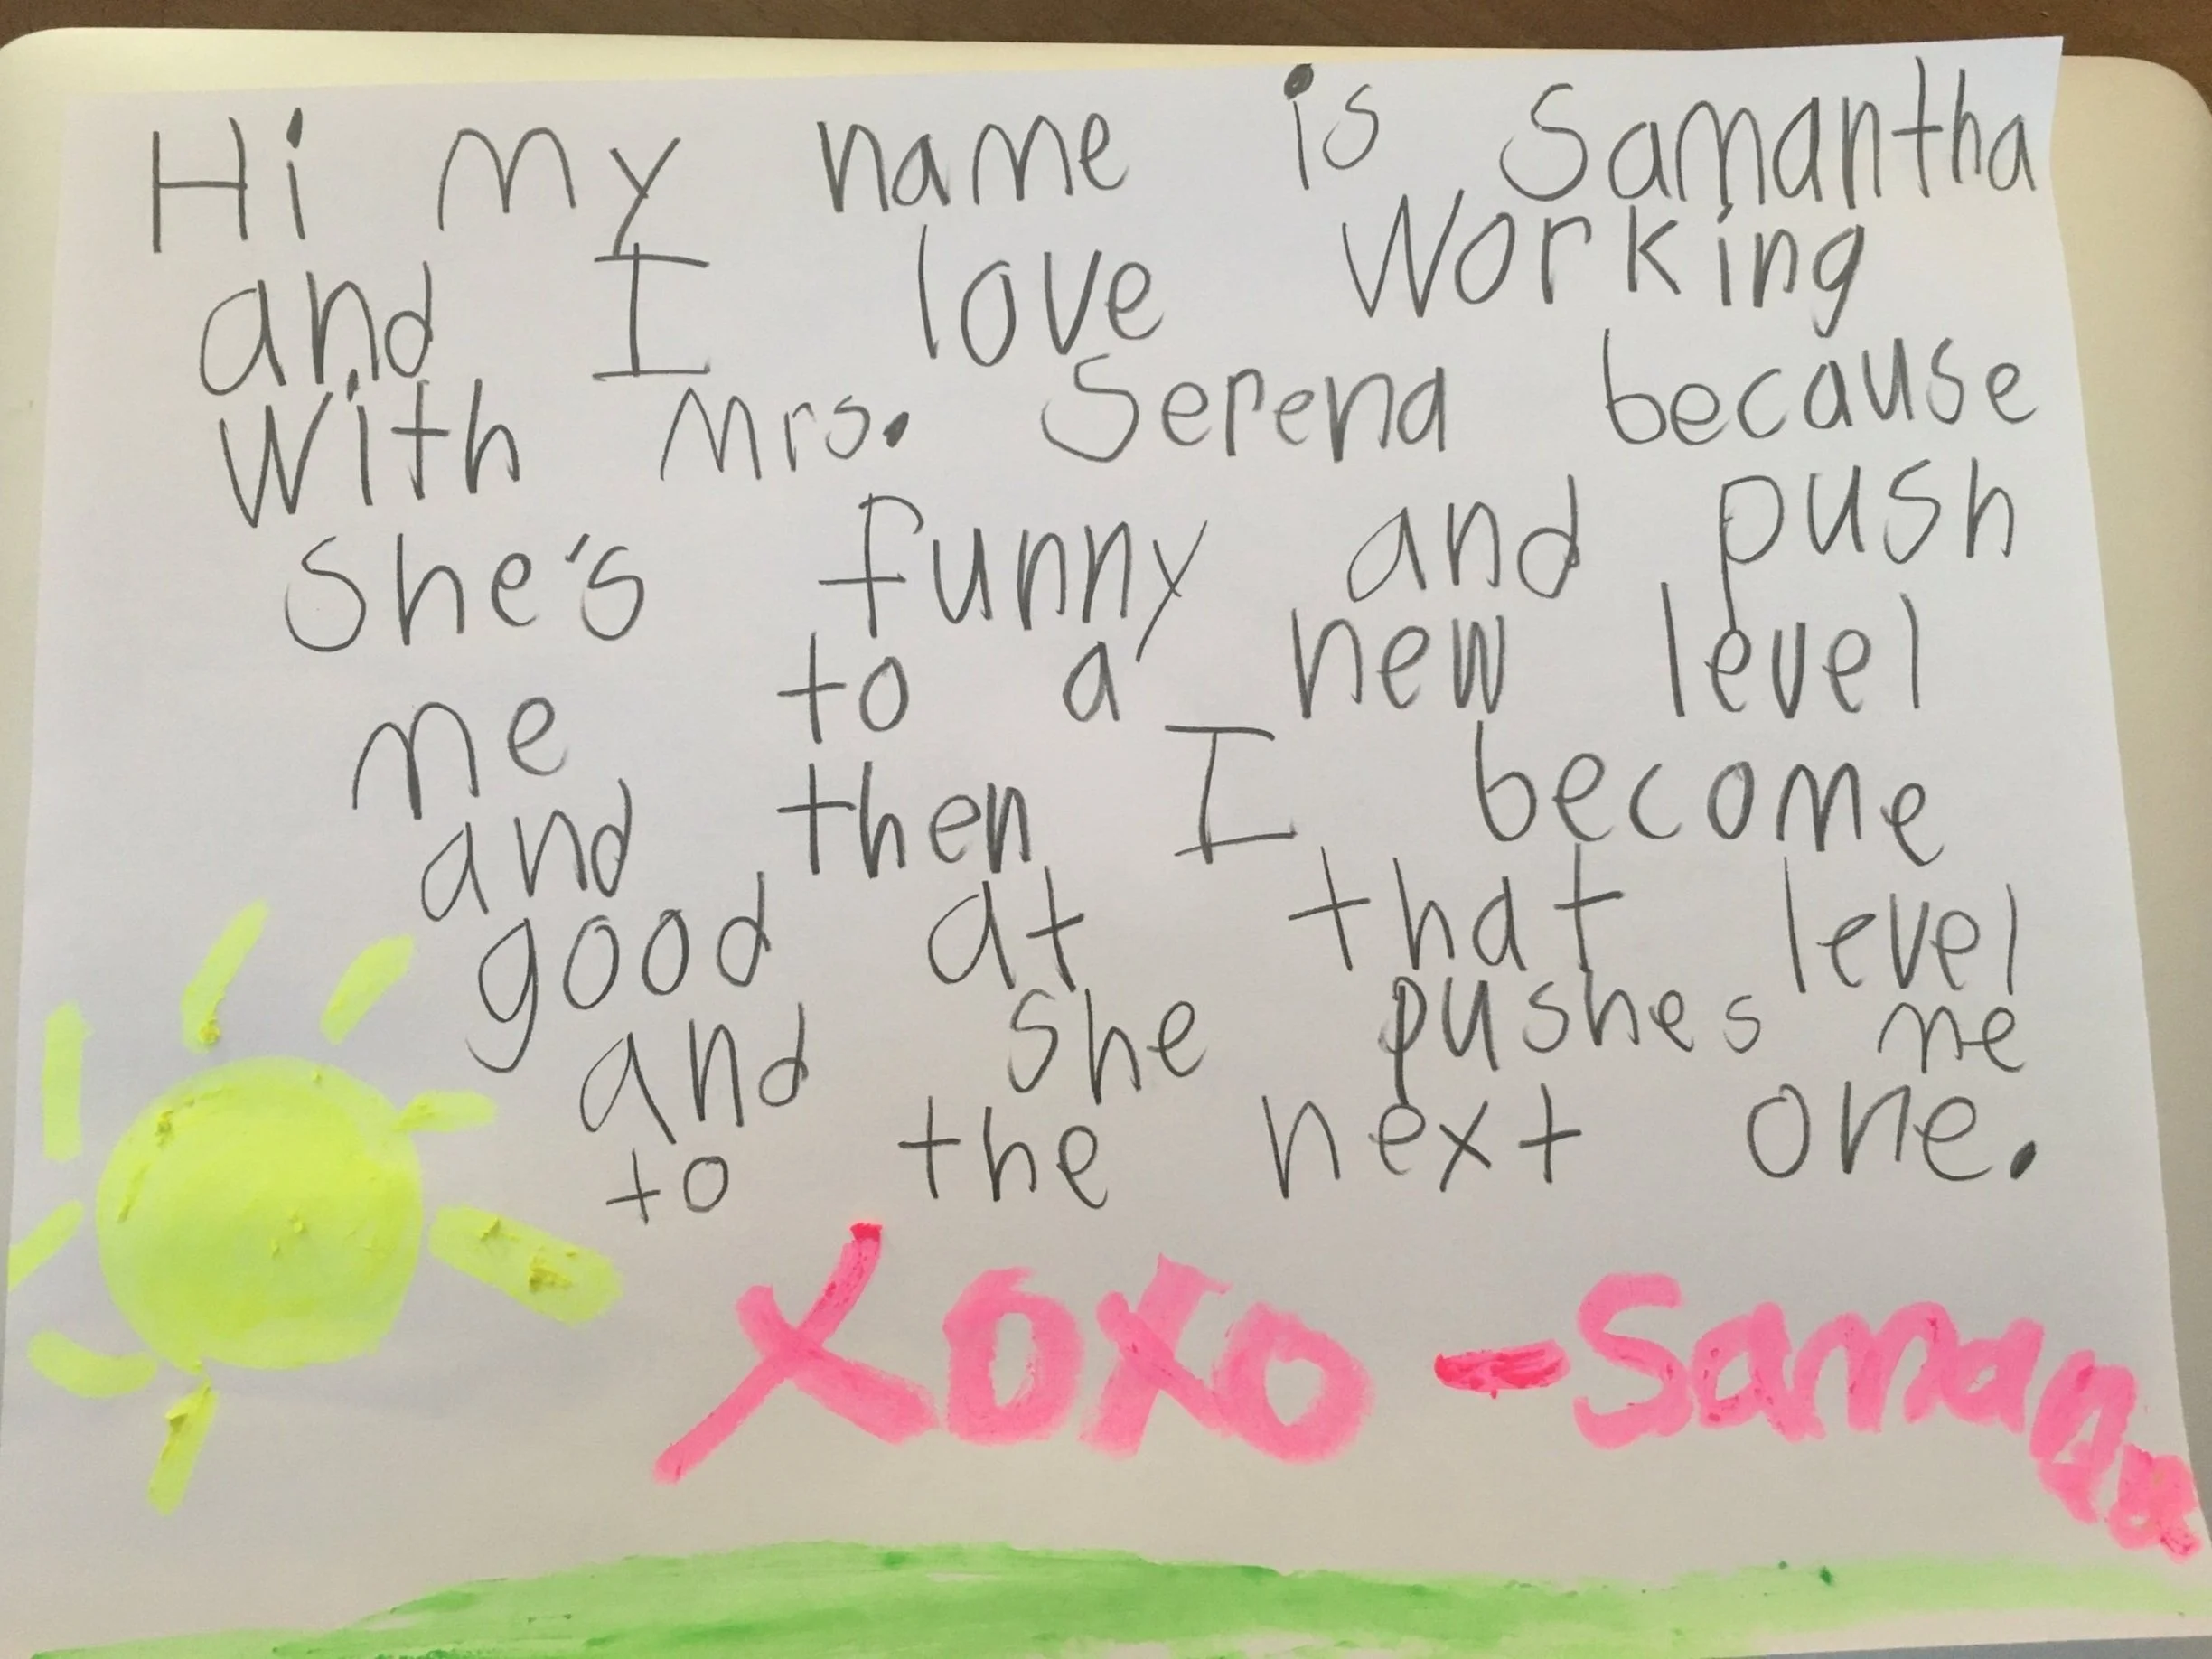 Hi my name is Samantha
and I love Working
With Mrs. Serena because
She's funny and push
me to a new level
and then I become
good at that level
and she pushes me
to the next one.
XOXO -Samantha